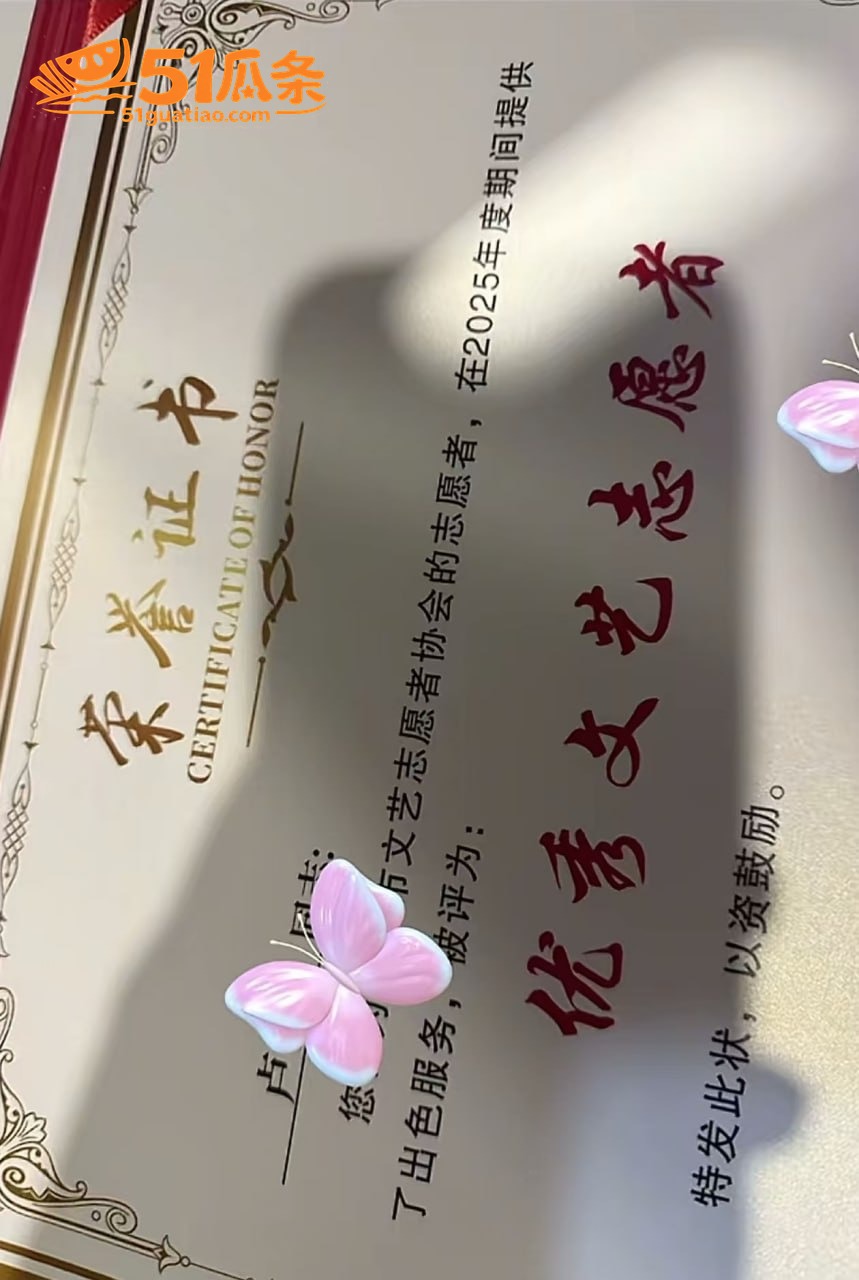 51瓜条
51guatiao.com
荣誉证书
CERTIFICATE OF HONOR
卢 同志：
您 市文艺志愿者协会的志愿者，在2025年度期间提供
了出色服务，被评为：
优秀文艺志愿者
特发此状，以资鼓励。